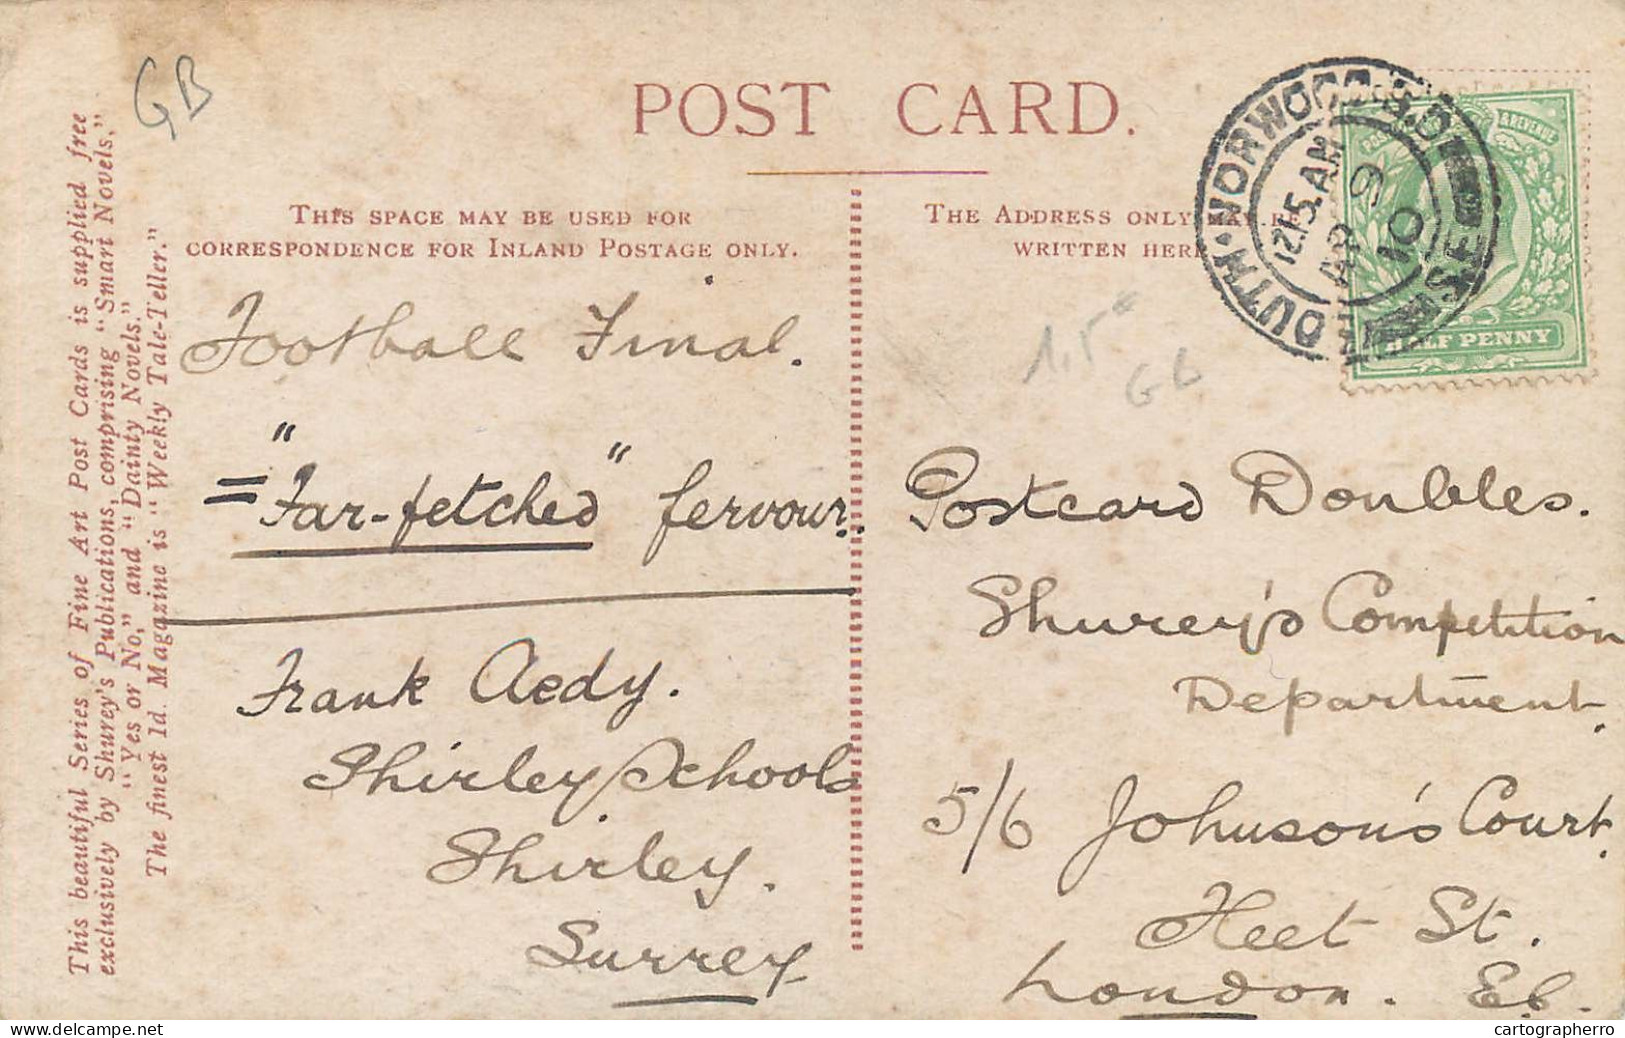 GB
POST CARD.
THIS SPACE MAY BE USED FOR
CORRESPONDENCE FOR INLAND POSTAGE ONLY.
THE ADDRESS ONLY MAY BE
WRITTEN HERE
This beautiful Series of Fine Art Post Cards is supplied free
exclusively by Shurey's Publications, comprising "Smart Novels,"
"Yes or No," and "Dainty Novels."
The finest 1d. Magazine is "Weekly Tale-Teller."
Football Final.
= "Far-fetched" fervour.
Frank Aedy.
Shirley Schools
Shirley.
Surrey
1.5
GB
Postcard Doubles.
Shurey's Competition
Department.
5/6 Johnson's Court.
Fleet St.
London. E.C.
SOUTH·NORWOOD·S.O
12.15.AM
AP 9
10
& REVENUE
HALF PENNY
cartographerro